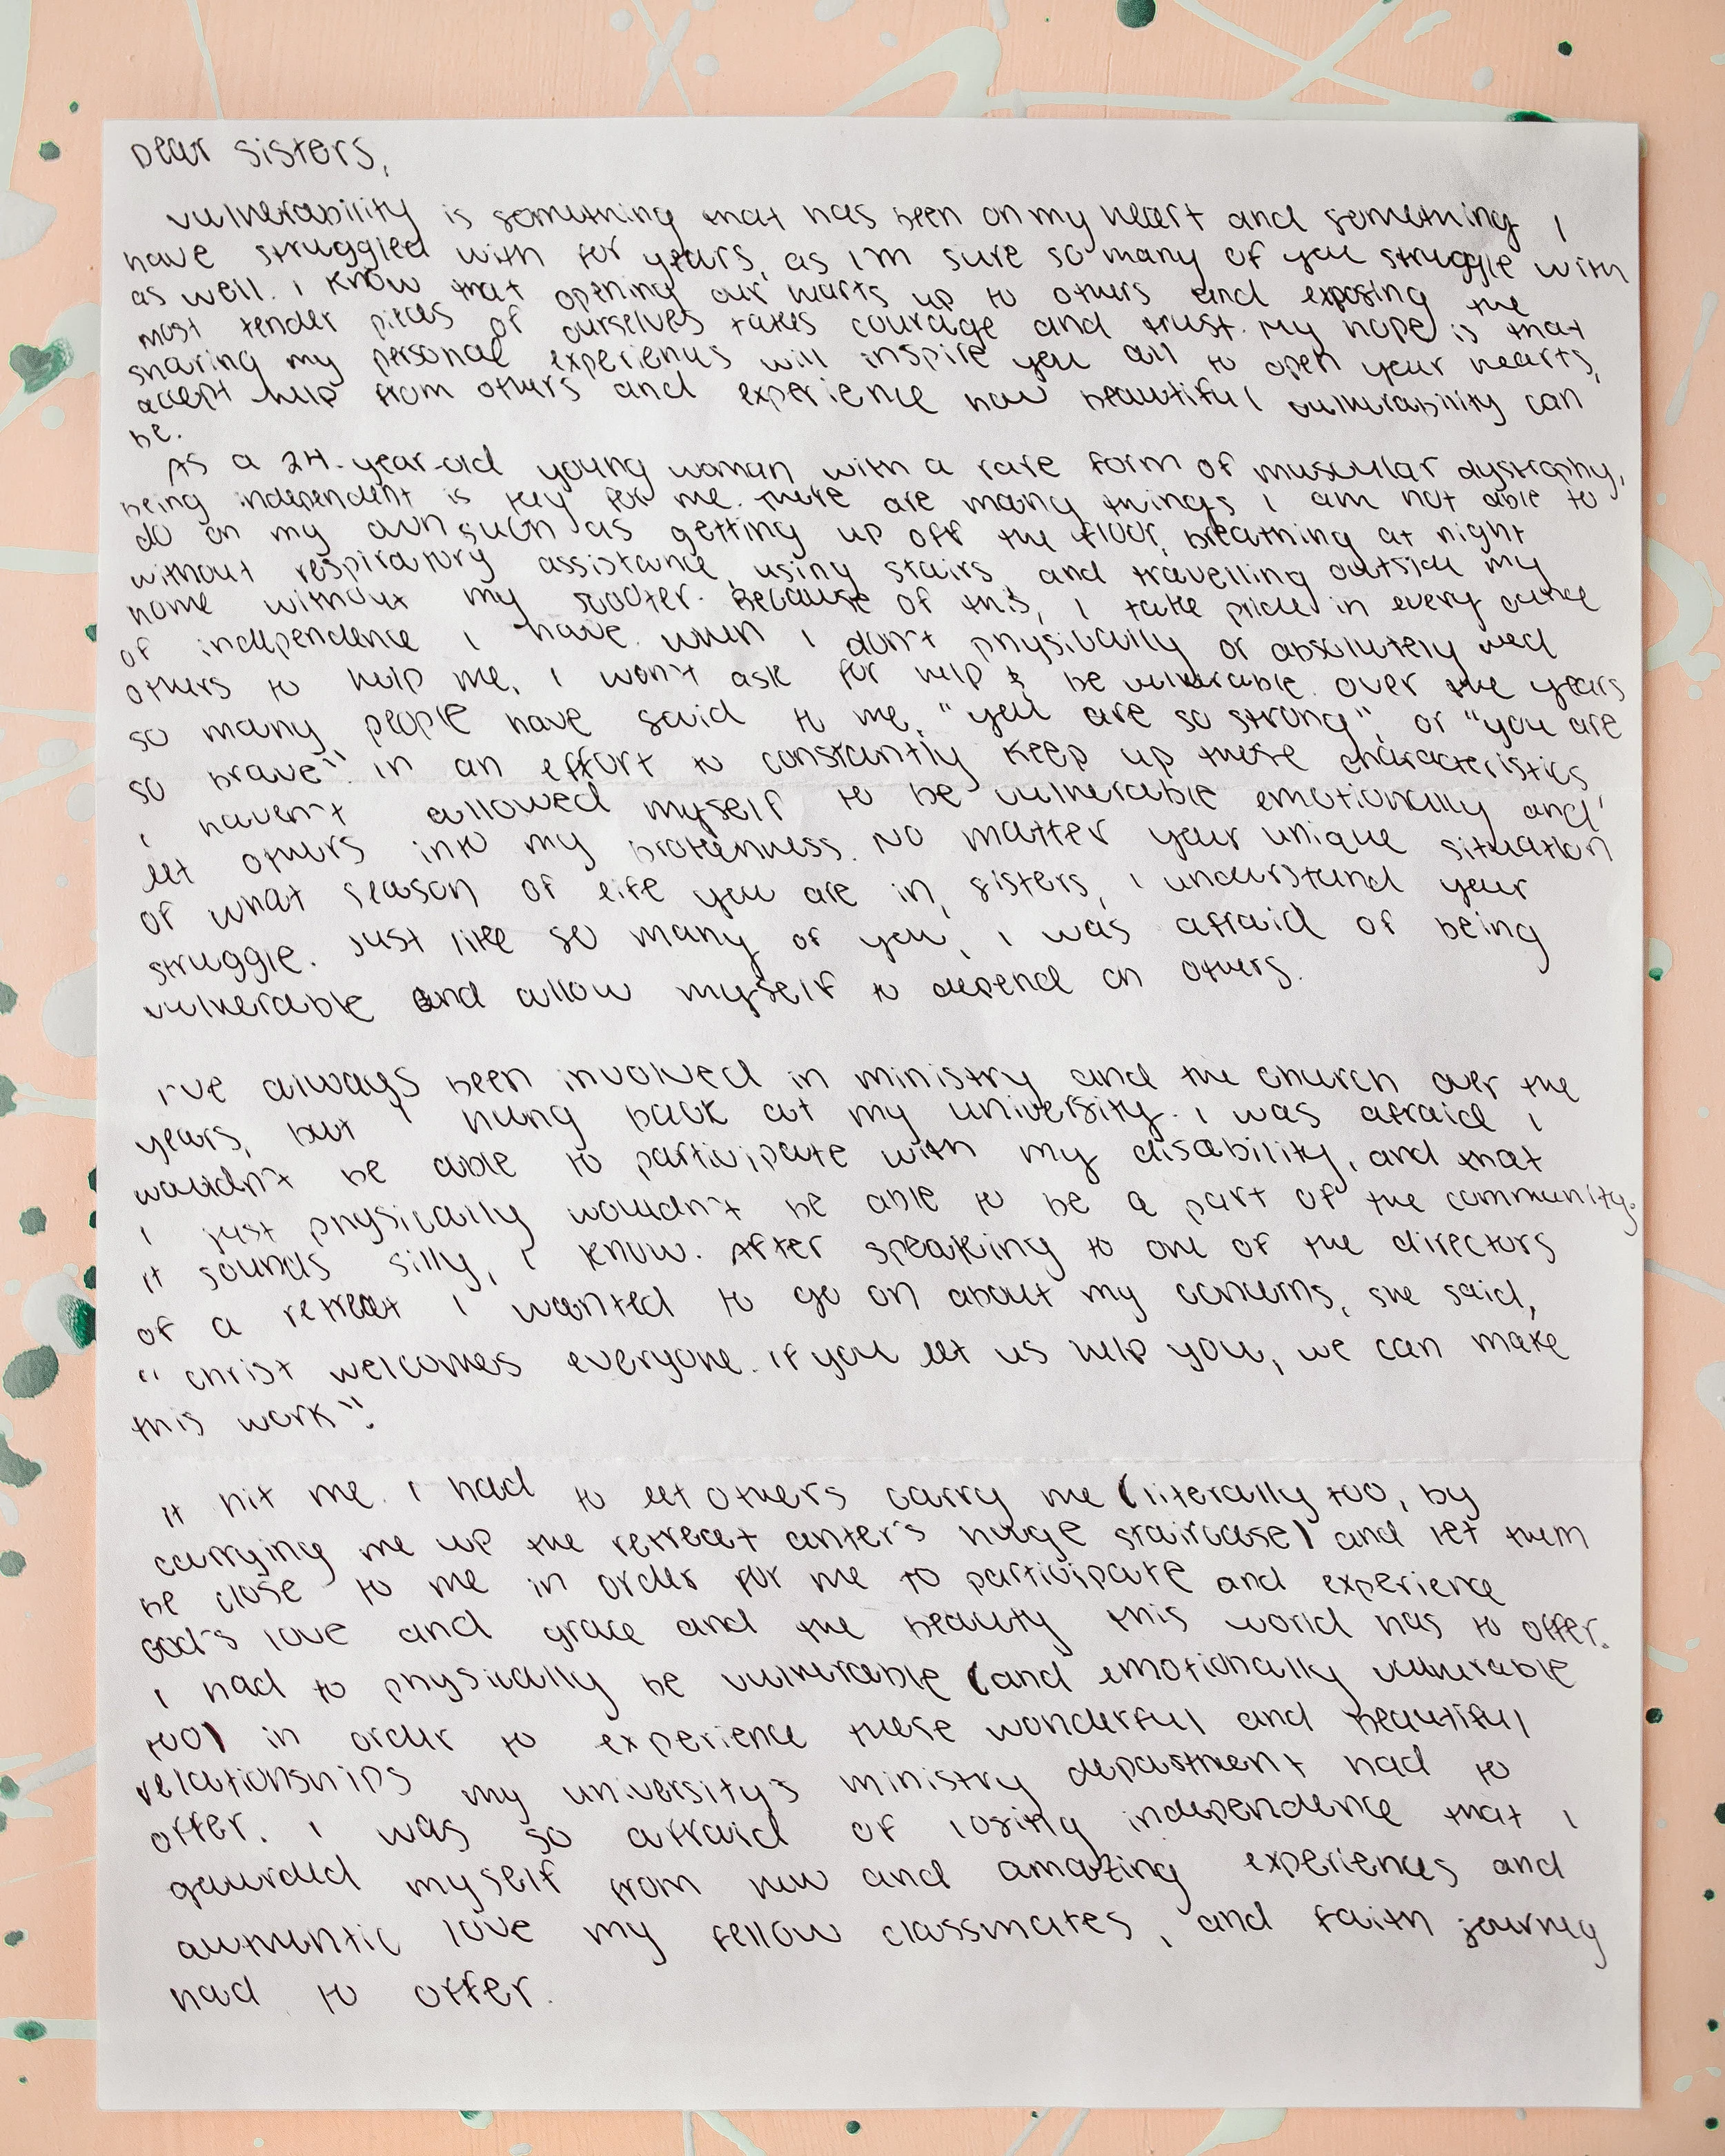 Dear sisters,
vulnerability is something that has been on my heart and something I
have struggled with for years, as I'm sure so many of you struggle with
as well. I know that opening our hearts up to others and exposing the
most tender pieces of ourselves takes courage and trust. My hope is that
sharing my personal experiences will inspire you all to open your hearts,
accept help from others and experience how beautiful vulnerability can
be.
As a 24-year-old young woman with a rare form of muscular dystrophy,
being independent is key for me. There are many things I am not able to
do on my own such as getting up off the floor, breathing at night
without respiratory assistance, using stairs, and travelling outside my
home without my scooter. Because of this, I take pride in every ounce
of independence I have. When I don't physically or absolutely need
others to help me, I won't ask for help & be vulnerable. Over the years
so many people have said to me, "you are so strong", or "you are
so brave". In an effort to constantly keep up these characteristics
I haven't allowed myself to be vulnerable emotionally and
let others into my brokenness. No matter your unique situation
of what season of life you are in, sisters, I understand your
struggle. Just like so many of you, I was afraid of being
vulnerable and allow myself to depend on others.
I've always been involved in ministry and the church over the
years, but I hung back at my university. I was afraid I
wouldn't be able to participate with my disability, and that
I just physically wouldn't be able to be a part of the community.
It sounds silly, I know. After speaking to one of the directors
of a retreat I wanted to go on about my concerns, she said,
"Christ welcomes everyone. If you let us help you, we can make
this work".
It hit me. I had to let others carry me (literally too, by
carrying me up the retreat center's huge staircase) and let them
be close to me in order for me to participate and experience
God's love and grace and the beauty this world has to offer.
I had to physically be vulnerable (and emotionally vulnerable
too) in order to experience these wonderful and beautiful
relationships my university's ministry department had to
offer. I was so afraid of losing independence that I
gaurded myself from new and amazing experiences and
authentic love my fellow classmates, and faith journey
had to offer.